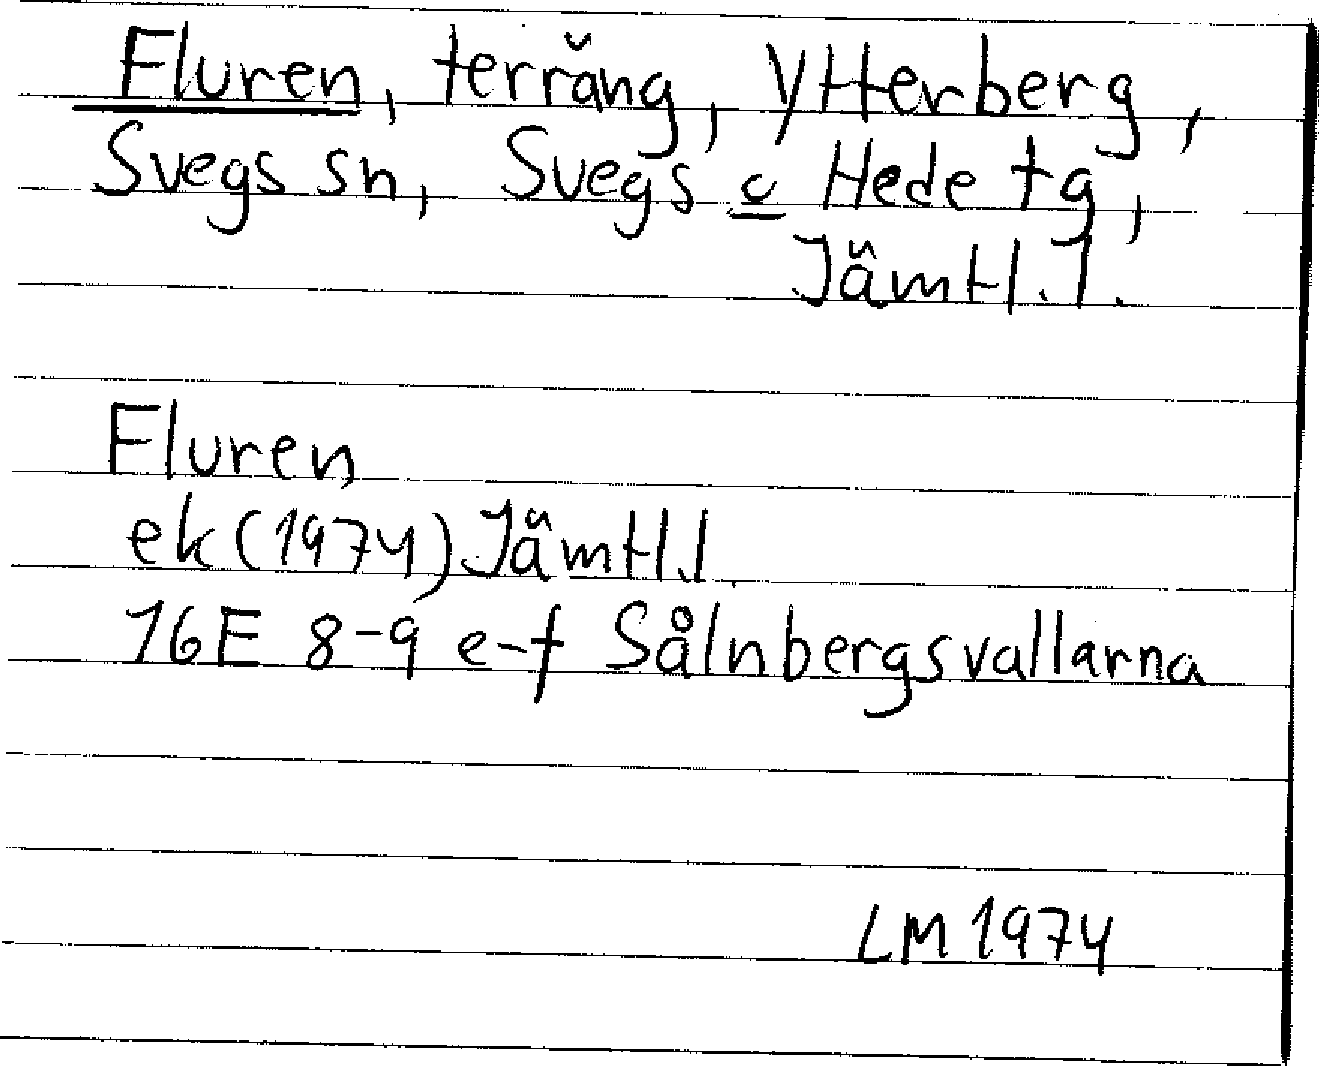 Fluren, terräng, Ytterberg,
Svegs sn, Svegs o Hede tg,
Jämtl. l.
Fluren
ek (1974) Jämtl. l
16E 8-9 e-f Sålnbergsvallarna
LM 1974